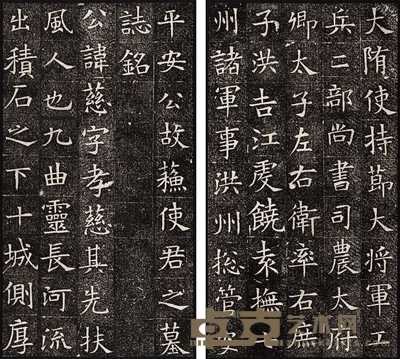 大陏使持莭大將軍工
兵二部尚書司農太府
卿太子左右衛率右庶
子洪吉江虔饒袁撫
州諸軍事洪州捴管
平安公故蘓使君之墓
誌銘
公諱慈字孝慈其先扶
風人也九曲靈長河流
出積石之下十城側厚